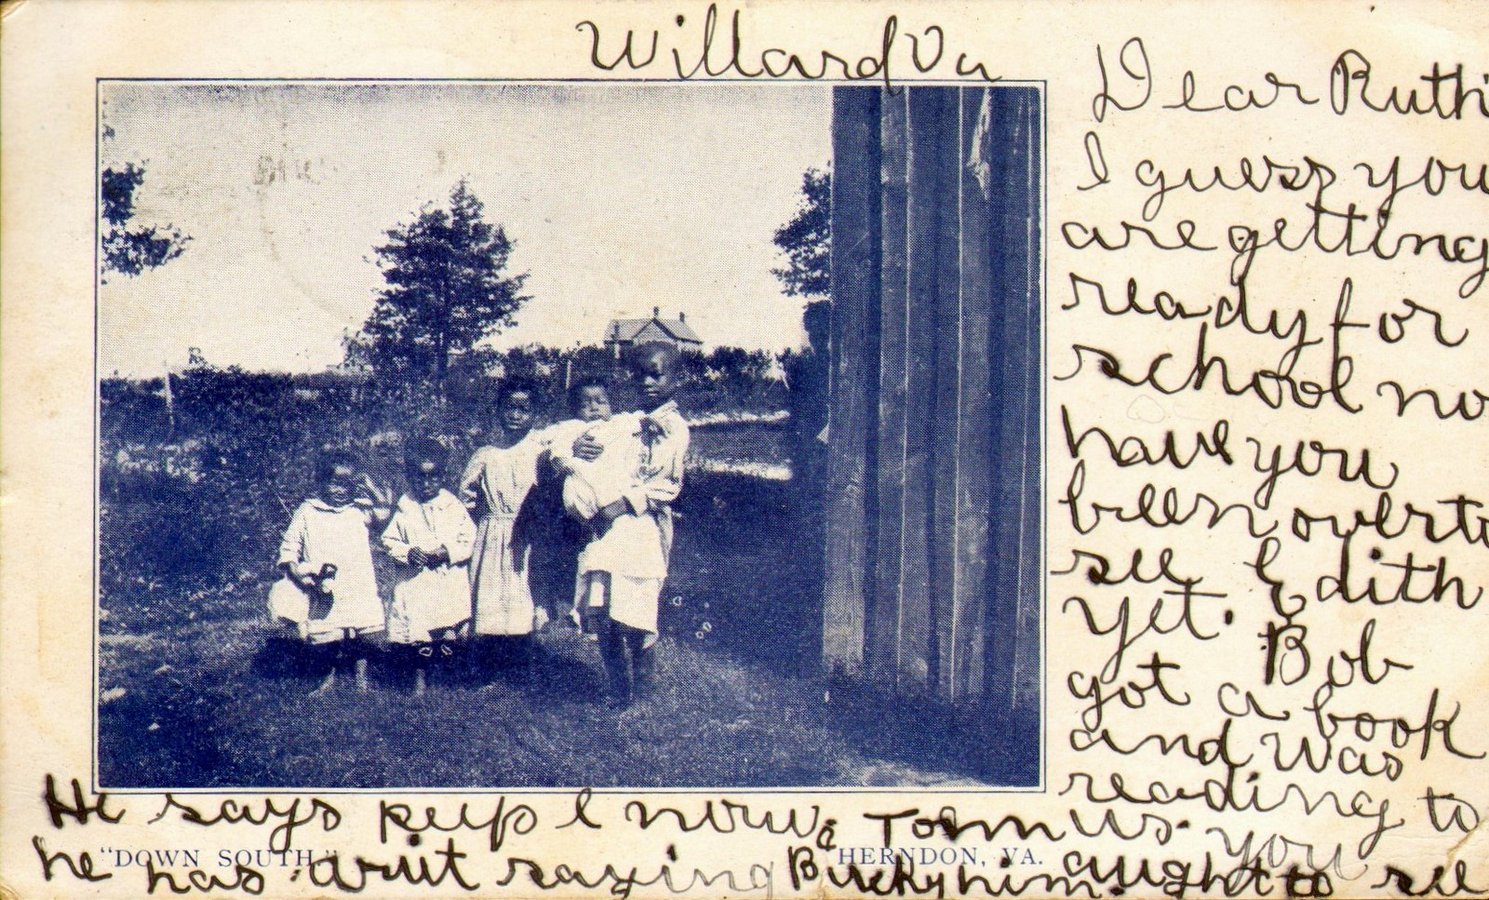 Willard Va
Dear Ruth
I guess you
are getting
ready for
school no
have you
been over to
see Edith
yet. Bob
got a book
and was
reading to
us. you
aught to see
He says keep
he has arit saying Bucky him.
"DOWN SOUTH."
HERNDON, VA.